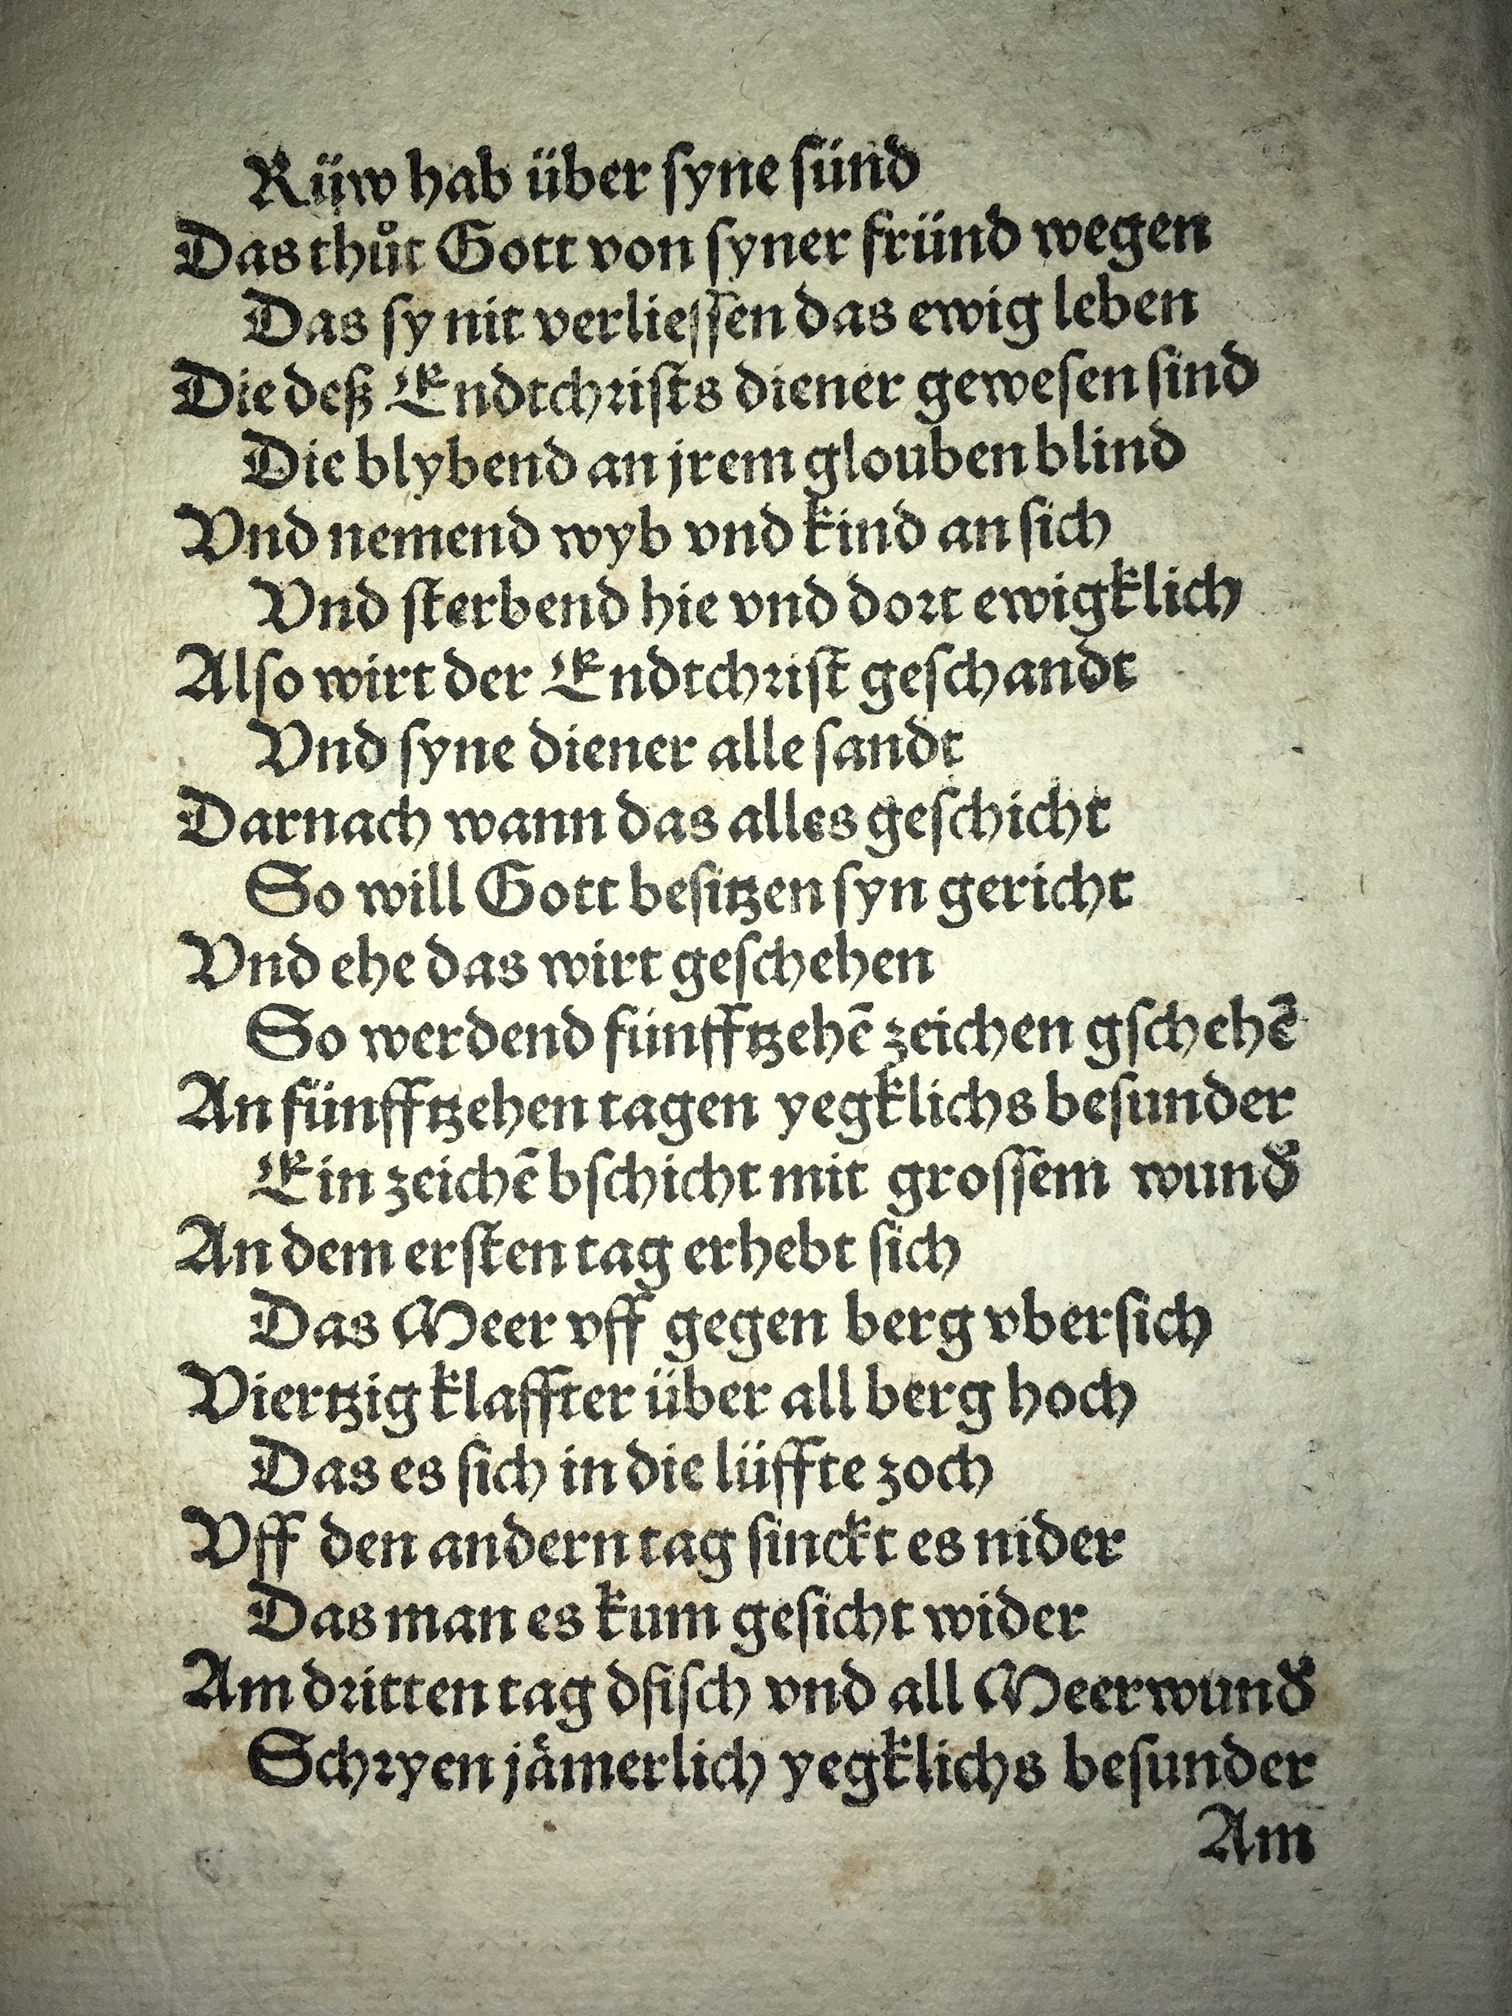 Rüw hab über syne sünd
Das thůt Gott von syner fründ wegen
Das sy nit verliessen das ewig leben
Die deß Endtchrists diener gewesen sind
Die blybend an jrem glouben blind
Vnd nemend wyb vnd kind an sich
Vnd sterbend hie vnd dort ewigklich
Also wirt der Endtchrist geschandt
Vnd syne diener alle sandt
Darnach wann das alles geschicht
So will Gott besitzen syn gericht
Vnd ehe das wirt geschehen
So werdend fünfftzehē zeichen gschehē
An fünfftzehen tagen yegklichs besunder
Ein zeichē bschicht mit grossem wund
An dem ersten tag erhebt sich
Das Meer vff gegen berg vbersich
Viertzig klaffter über all berg hoch
Das es sich in die lüffte zoch
Vff den andern tag sinckt es nider
Das man es kum gesicht wider
Am dritten tag dfisch vnd all Meerwund
Schryen jämerlich yegklichs besunder
Am